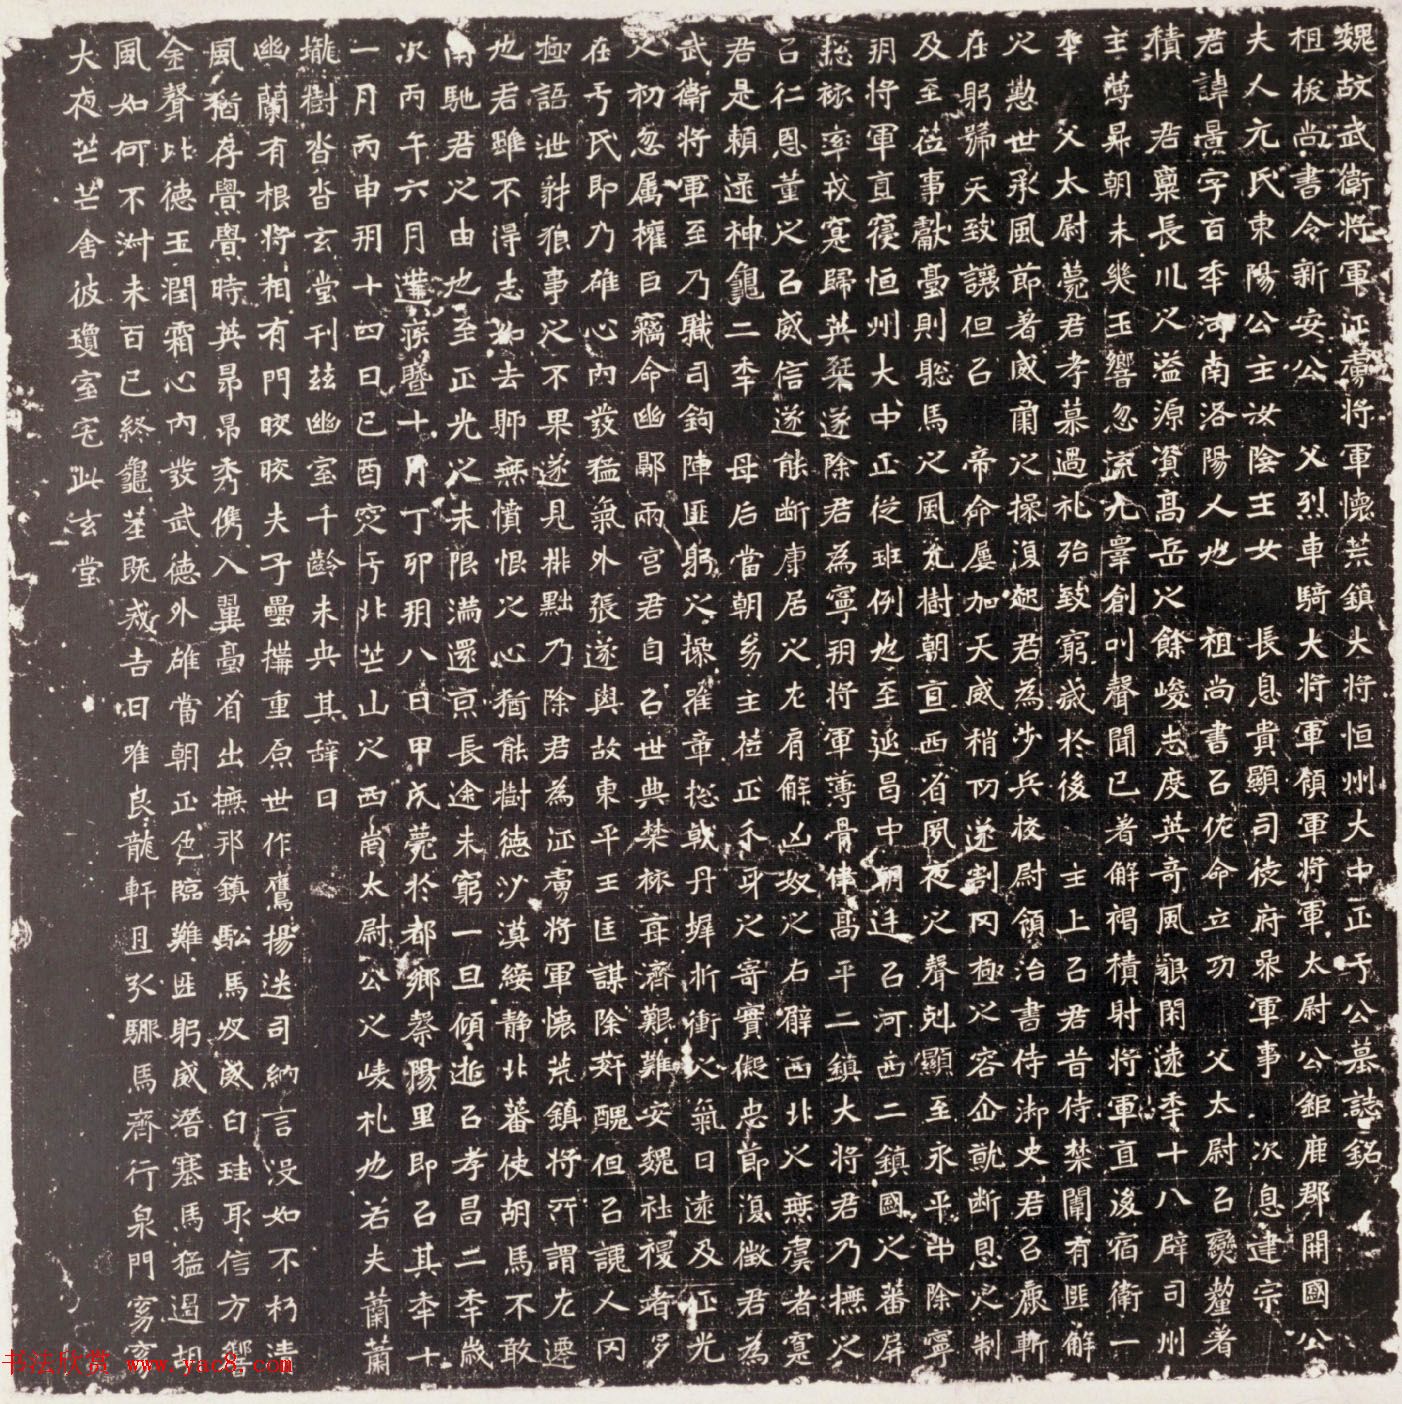 魏故武衛將軍征虜將軍懷荒鎮大將恒州大中正于公墓誌銘
祖拔尚書令新安公 父烈車騎大將軍領軍將軍太尉公鉅鹿郡開國公
夫人元氏東陽公主汝陰王女 長息貴顯司徒府參軍事 次息建宗
君諱景字百年河南洛陽人也 祖尚書㠯佐命立功 父太尉㠯燮釐著
積 君稟長川之溢源資高岳之餘峻志度英奇風貌閑遠年十八辟司州
主薄昇朝未幾玉響忽流九睾創叫聲聞已著解褐積射將軍直後宿衛一
年 父太尉薨君孝慕過礼殆致窮滅於後 主上㠯君昔侍禁闈有匪解
之懃世承風節著威肅之操復起君為步兵校尉領治書侍御史君㠯麻斬
在躬號天致讓但㠯 帝命屢加天威稍切遂割罔極之容企就斷恩之制
及至莅事獻臺則驄馬之風允樹朝直西省夙夜之聲剋顯至永平中除寧
朔將軍直寢恒州大中正從班例也至延昌中朝廷㠯河西二鎮國之蕃屏
捴旅率戎寔歸英桀遂除君為寧朔將軍薄骨律高平二鎮大將君乃撫之
㠯仁恩董之㠯威信遂能断康居之左肩解凶奴之右臂西北之無虞者寔
君是賴逯神龜二年 母后當朝㓜主莅正爪牙之寄實儗忠節復徵君為
武衛將軍至乃職司鉤陣匪躬之操唯章捴戟丹墀折衝之氣日遠及正光
之初忽属權臣竊命幽鄣兩宮君自㠯世典禁旅每濟艱難安魏社稷者多
在于氏即乃雄心內發猛氣外張遂與故東平王匡謀除姧醜但㠯讒人罔
極語泄豺狼事之不果遂見排黜乃除君為征虜將軍懷荒鎮將所謂左遷
也君雖不得志如去䣛無憤恨之心猶能樹德沙漠綏静北蕃使胡馬不敢
南馳君之由也至正光之末限滿還京長途未窮一旦傾逝㠯孝昌二年歲
次丙午六月遘疾暨十月丁卯朔八日甲戌薨於都鄉縠陽里即㠯其年十
一月丙申朔十四日己酉窆于北芒山之西崗太尉公之崚札也若夫蘭薾
壠樹沓沓玄堂刊兹幽室千齡未央其辞曰
幽蘭有根將相有門皎皎夫子疊搆重原世作鷹揚迭司納言没如不朽清
風猶存亹亹時英昂昂秀儁入翼臺省出撫邦鎮馭馬㕛威白珪取信方響
金聲比德玉潤霜心內發武德外雄當朝正色臨難匪躬威潛塞馬猛遏胡
風如何不淑未百已終龜筮既戒吉日唯良龍軒且引驂馬齊行泉門寥寥
大夜芒芒舍彼瓊室宅此玄堂
书法欣赏 www.yac8.com